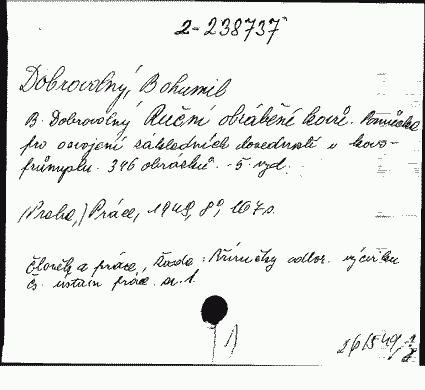 2-238737
Dobrovolný, Bohumil
B. Dobrovolný Ruční obrábění kovů. Pomůcka
pro osvojení základních dovedností v kovo-
průmyslu. 346 obrázků. - 5. vyd.
(Praha,) Práce, 1949, 8°, 167 s.
Člověk a práce, Řada: Příručky odbor. výcviku
Čs. ústavu práce. sv. 1.
1)